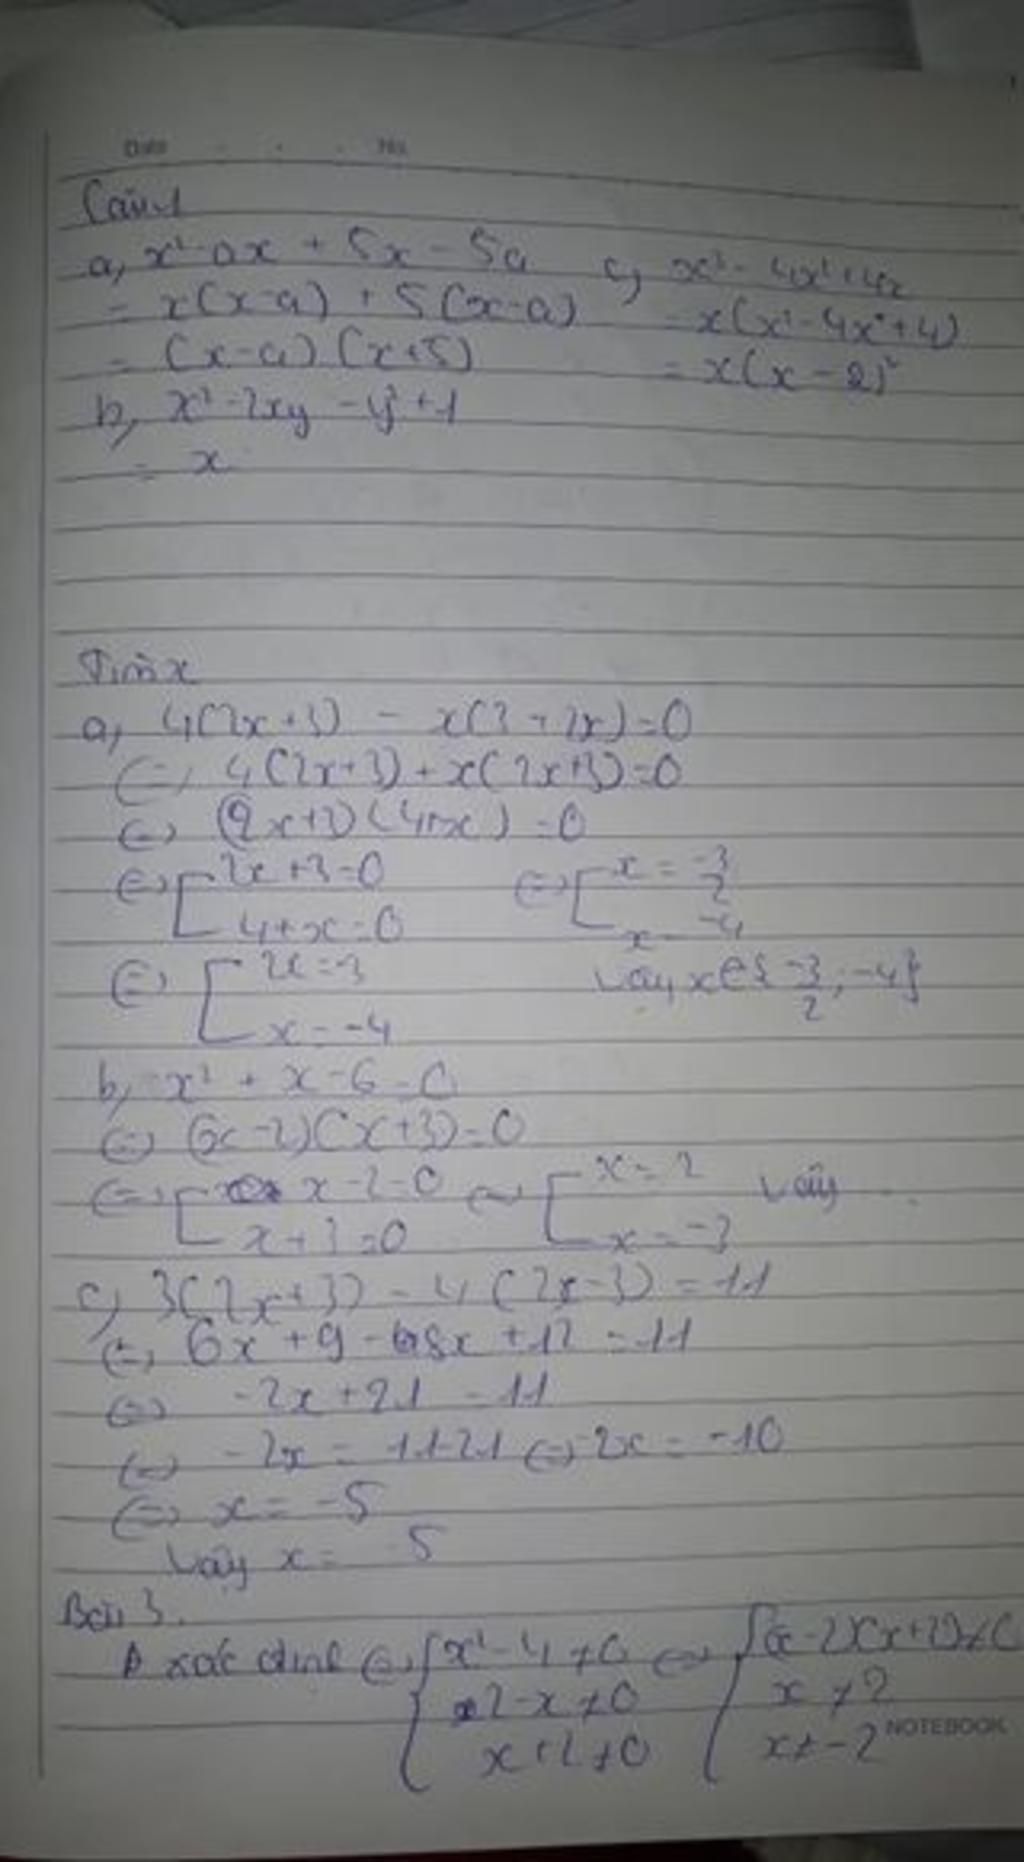 Date No.
Câu 1
a, x² - ax + 5x - 5a
= x(x-a) + 5(x-a)
= (x-a)(x+5)
b, x² - 2xy - y² + 1
= x
c, x³ - 4x² + 4x
= x(x² - 4x + 4)
= x(x - 2)²
Tìm x
a, 4(2x+3) - x(3+2x) = 0
<=> 4(2x+3) + x(2x+3) = 0
<=> (2x+3)(4+x) = 0
<=> [ 2x+3=0
4+x=0
<=> [ 2x=-3
x=-4
<=> [ x = -3/2
x = -4
Vậy x ∈ { -3/2 ; -4 }
b, x² + x - 6 = 0
<=> (x-2)(x+3) = 0
<=> [ x-2=0 <=> [ x=2 Vậy ...
x+3=0 x=-3
c, 3(2x+3) - 4(2x-3) = 11
<=> 6x + 9 - 8x + 12 = 11
<=> -2x + 21 = 11
<=> -2x = 11-21 <=> 2x = -10
<=> x = -5
Vậy x = -5
Bài 3.
A xác định <=> { x² - 4 ≠ 0 <=> { (x-2)(x+2) ≠ 0
2-x ≠ 0 x ≠ 2
x+2 ≠ 0 x ≠ -2
NOTEBOOK